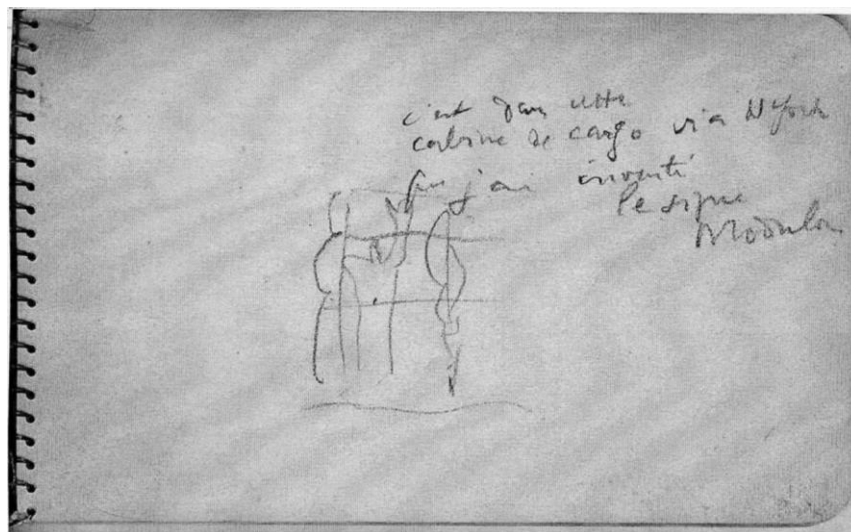 c'est dans cette
cabine de cargo via N York
que j'ai inventé
le signe
Modulor